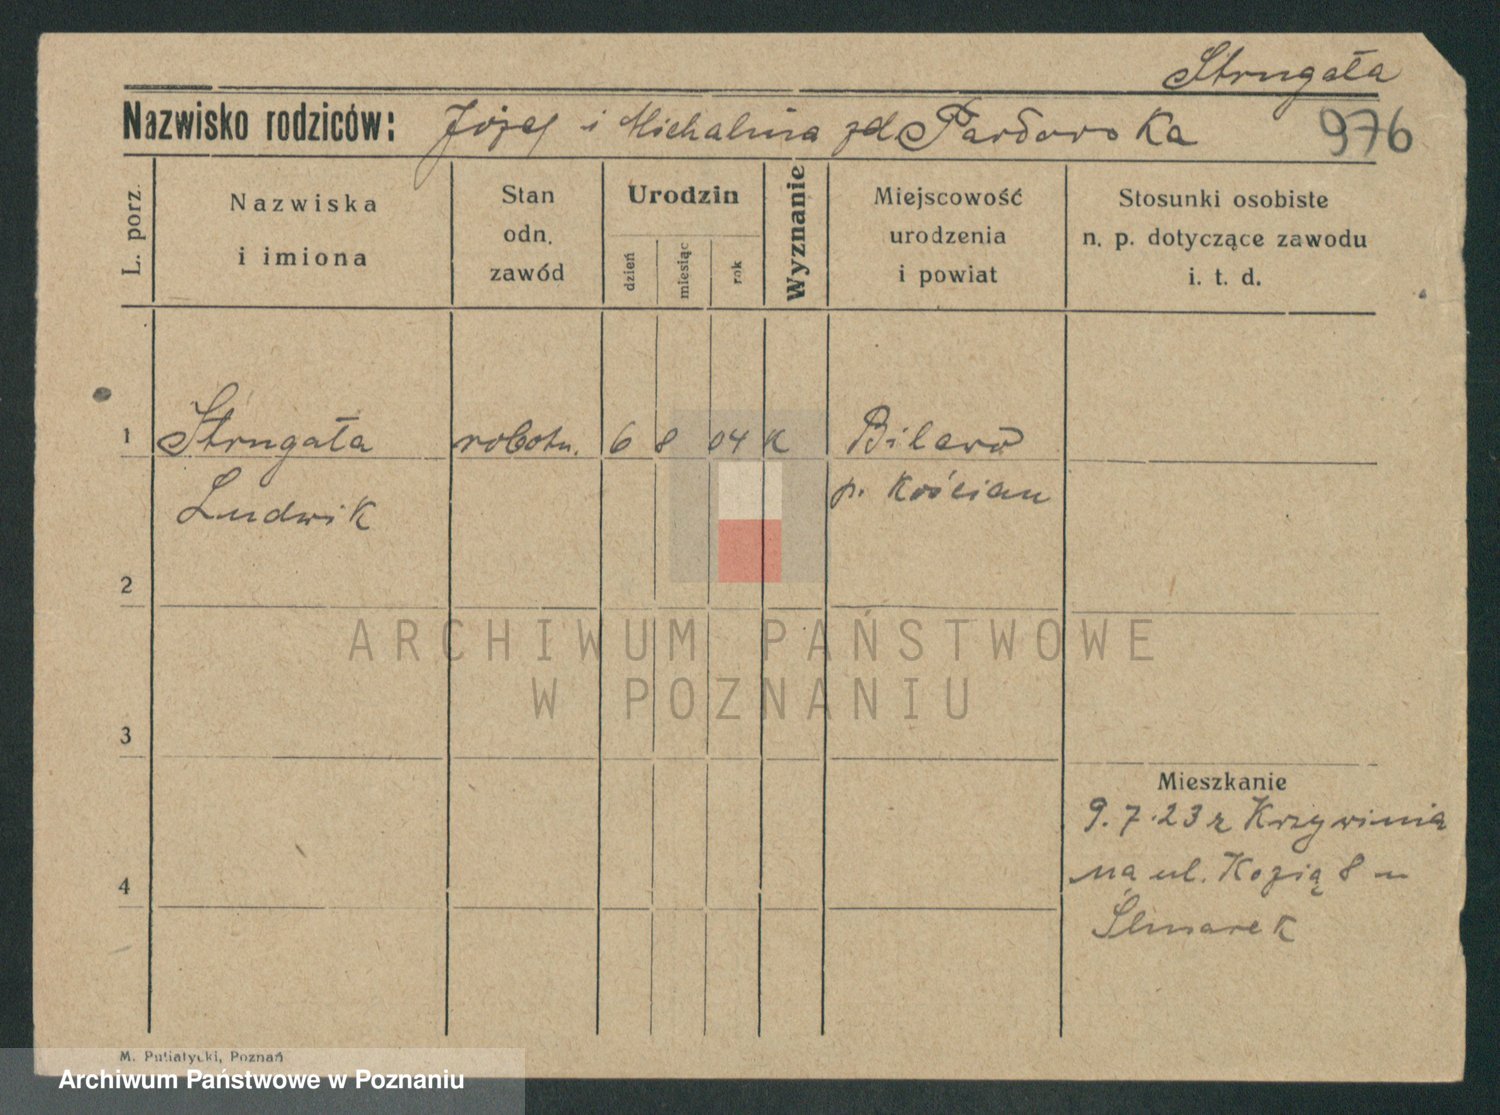 Strugała
Nazwisko rodziców: Józef i Michalina zd 976
L. porz.
Nazwiska
i imiona
Stan
odn.
zawód
Urodzin
dzień
miesiąc
rok
Wyznanie
Miejscowość
urodzenia
i powiat
Stosunki osobiste
n. p. dotyczące zawodu
i. t. d.
1 Strugała robotn. 6 8 04 K
Ludwik p. Kościan
2
ARCHIWUM PAŃSTWOWE
W POZNANIU
3
Mieszkanie
9.7.23 z Krzywinia
4 na ul. Kozią 8 u
M. Putiatycki, Poznań
Archiwum Państwowe w Poznaniu